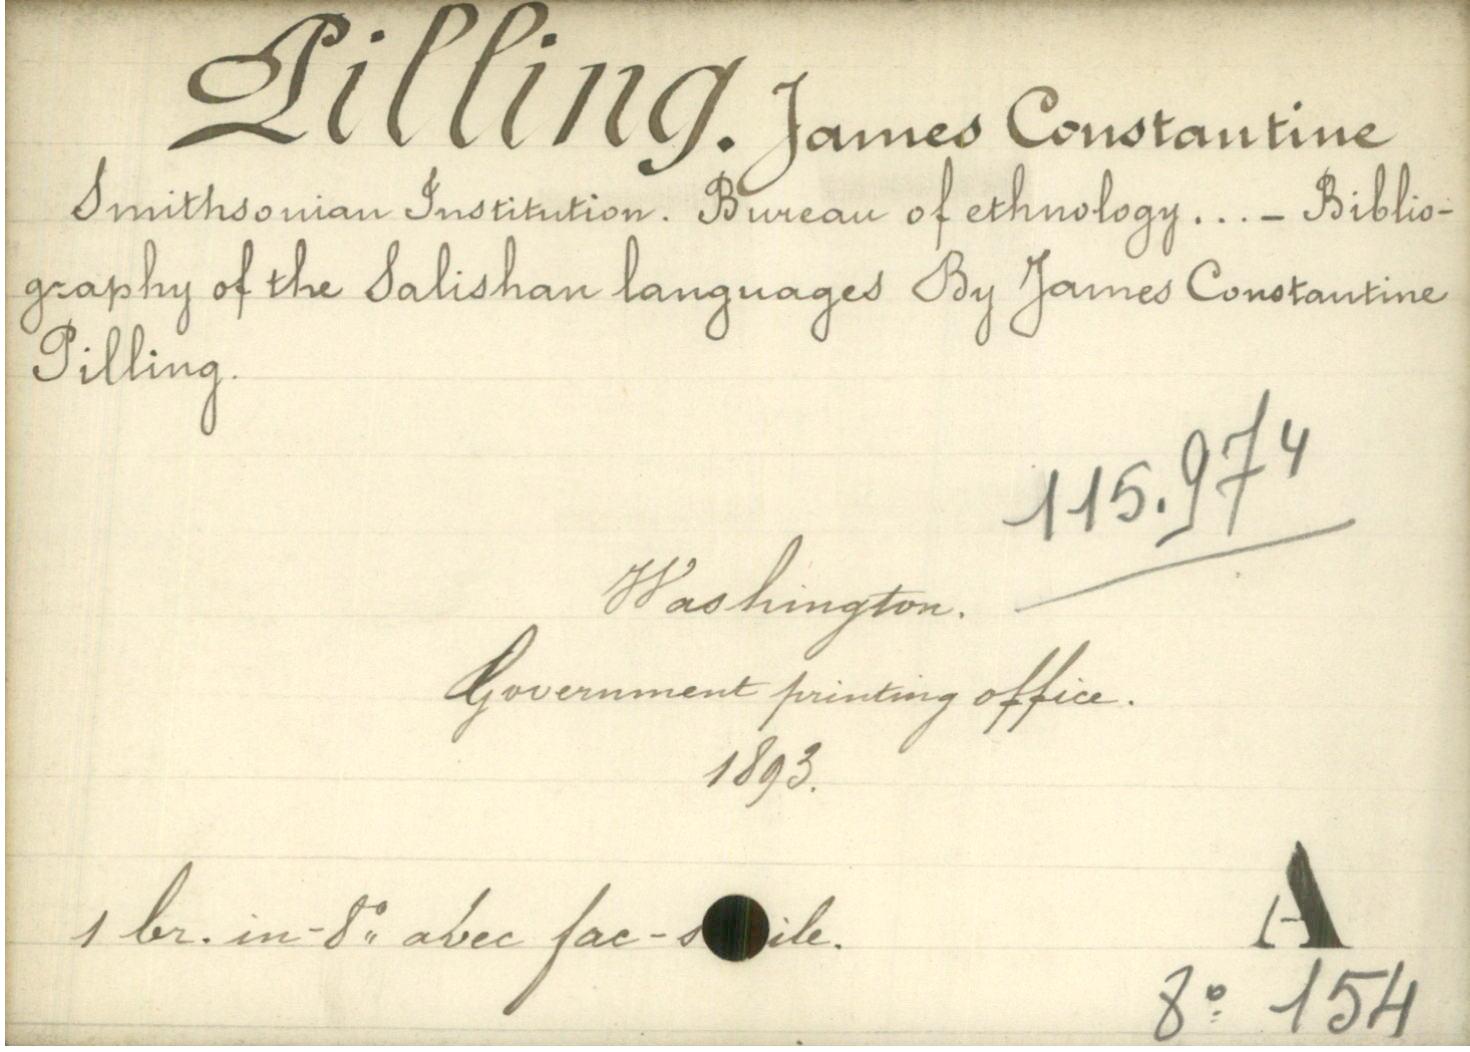 Pilling. James Constantine
Smithsonian Institution. Bureau of ethnology... – Biblio-
graphy of the Salishan languages By James Constantine
Pilling.
115.974
Washington.
Government printing office.
1893.
1 br. in-8° avec fac-s ile.
A
8° 154